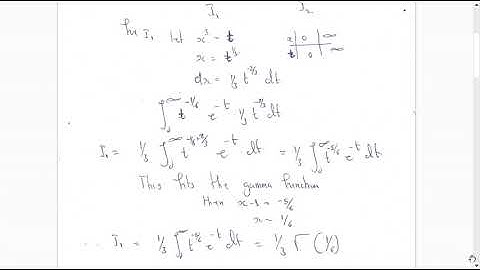 I₁ I₂
for I₁ let x³ = t x 0 ∞
x = t^{1/3} t 0 ∞
dx = 1/3 t^{-2/3} dt
∫₀^∞ t^{-1/6} e^{-t} 1/3 t^{-2/3} dt
I₁ = 1/3 ∫₀^∞ e^{-t} dt = 1/3 ∫₀^∞ t^{-5/6} e^{-t} dt
This hits the gamma function
then x-1 = -5/6
x = 1/6
∴ I₁ = 1/3 ∫₀^∞ t^{-5/6} e^{-t} dt = 1/3 Γ (1/6)